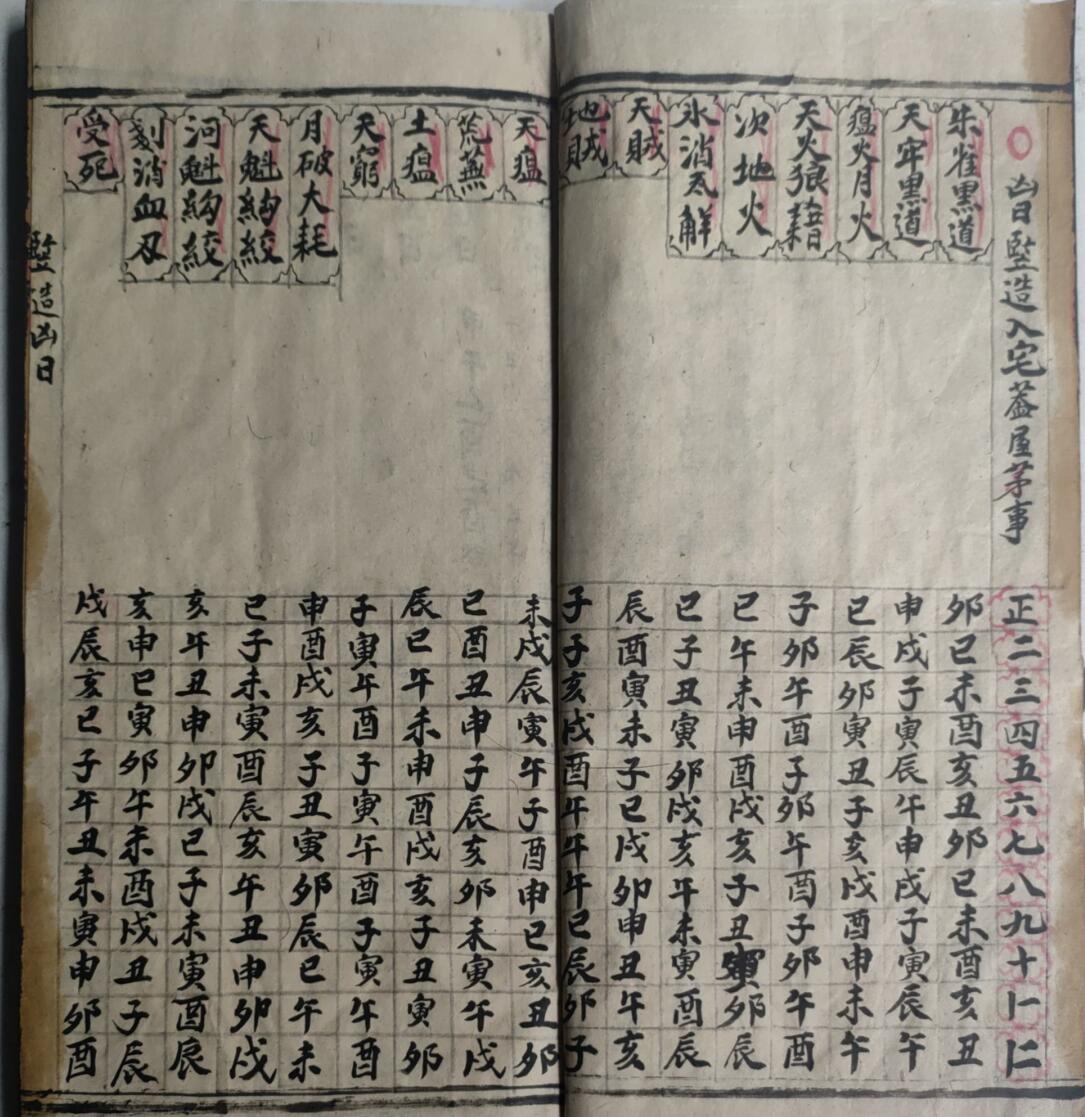 凶日竪造入宅蓋屋茅事 正二三四五六七八九十十一十二
朱雀黑道 卯巳未酉亥丑卯巳未酉亥丑
天牢黑道 申戌子寅辰午申戌子寅辰午
瘟火月火 巳辰卯寅丑子亥戌酉申未午
天火狼藉 子卯午酉子卯午酉子卯午酉
次地火 巳午未申酉戌亥子丑寅卯辰
氷消瓦解 巳子丑寅卯戌亥午未寅酉辰
天賊 辰酉寅未子巳戌卯申丑午亥
地賊 子子亥戌酉午午午巳辰卯子
天瘟 未戌辰寅午子酉申巳亥丑卯
荒蕪 巳酉丑申子辰亥卯未寅午戌
土瘟 辰巳午未申酉戌亥子丑寅卯
天窮 子寅午酉子寅午酉子寅午酉
月破大耗 申酉戌亥子丑寅卯辰巳午未
天魁絇絞 巳子未寅酉辰亥午丑申卯戌
河魁絇絞 亥午丑申卯戌巳子未寅酉辰
消血刃 亥申巳寅卯午未酉戌丑子辰
受死 戌辰亥巳子午丑未寅申卯酉
竪造凶日